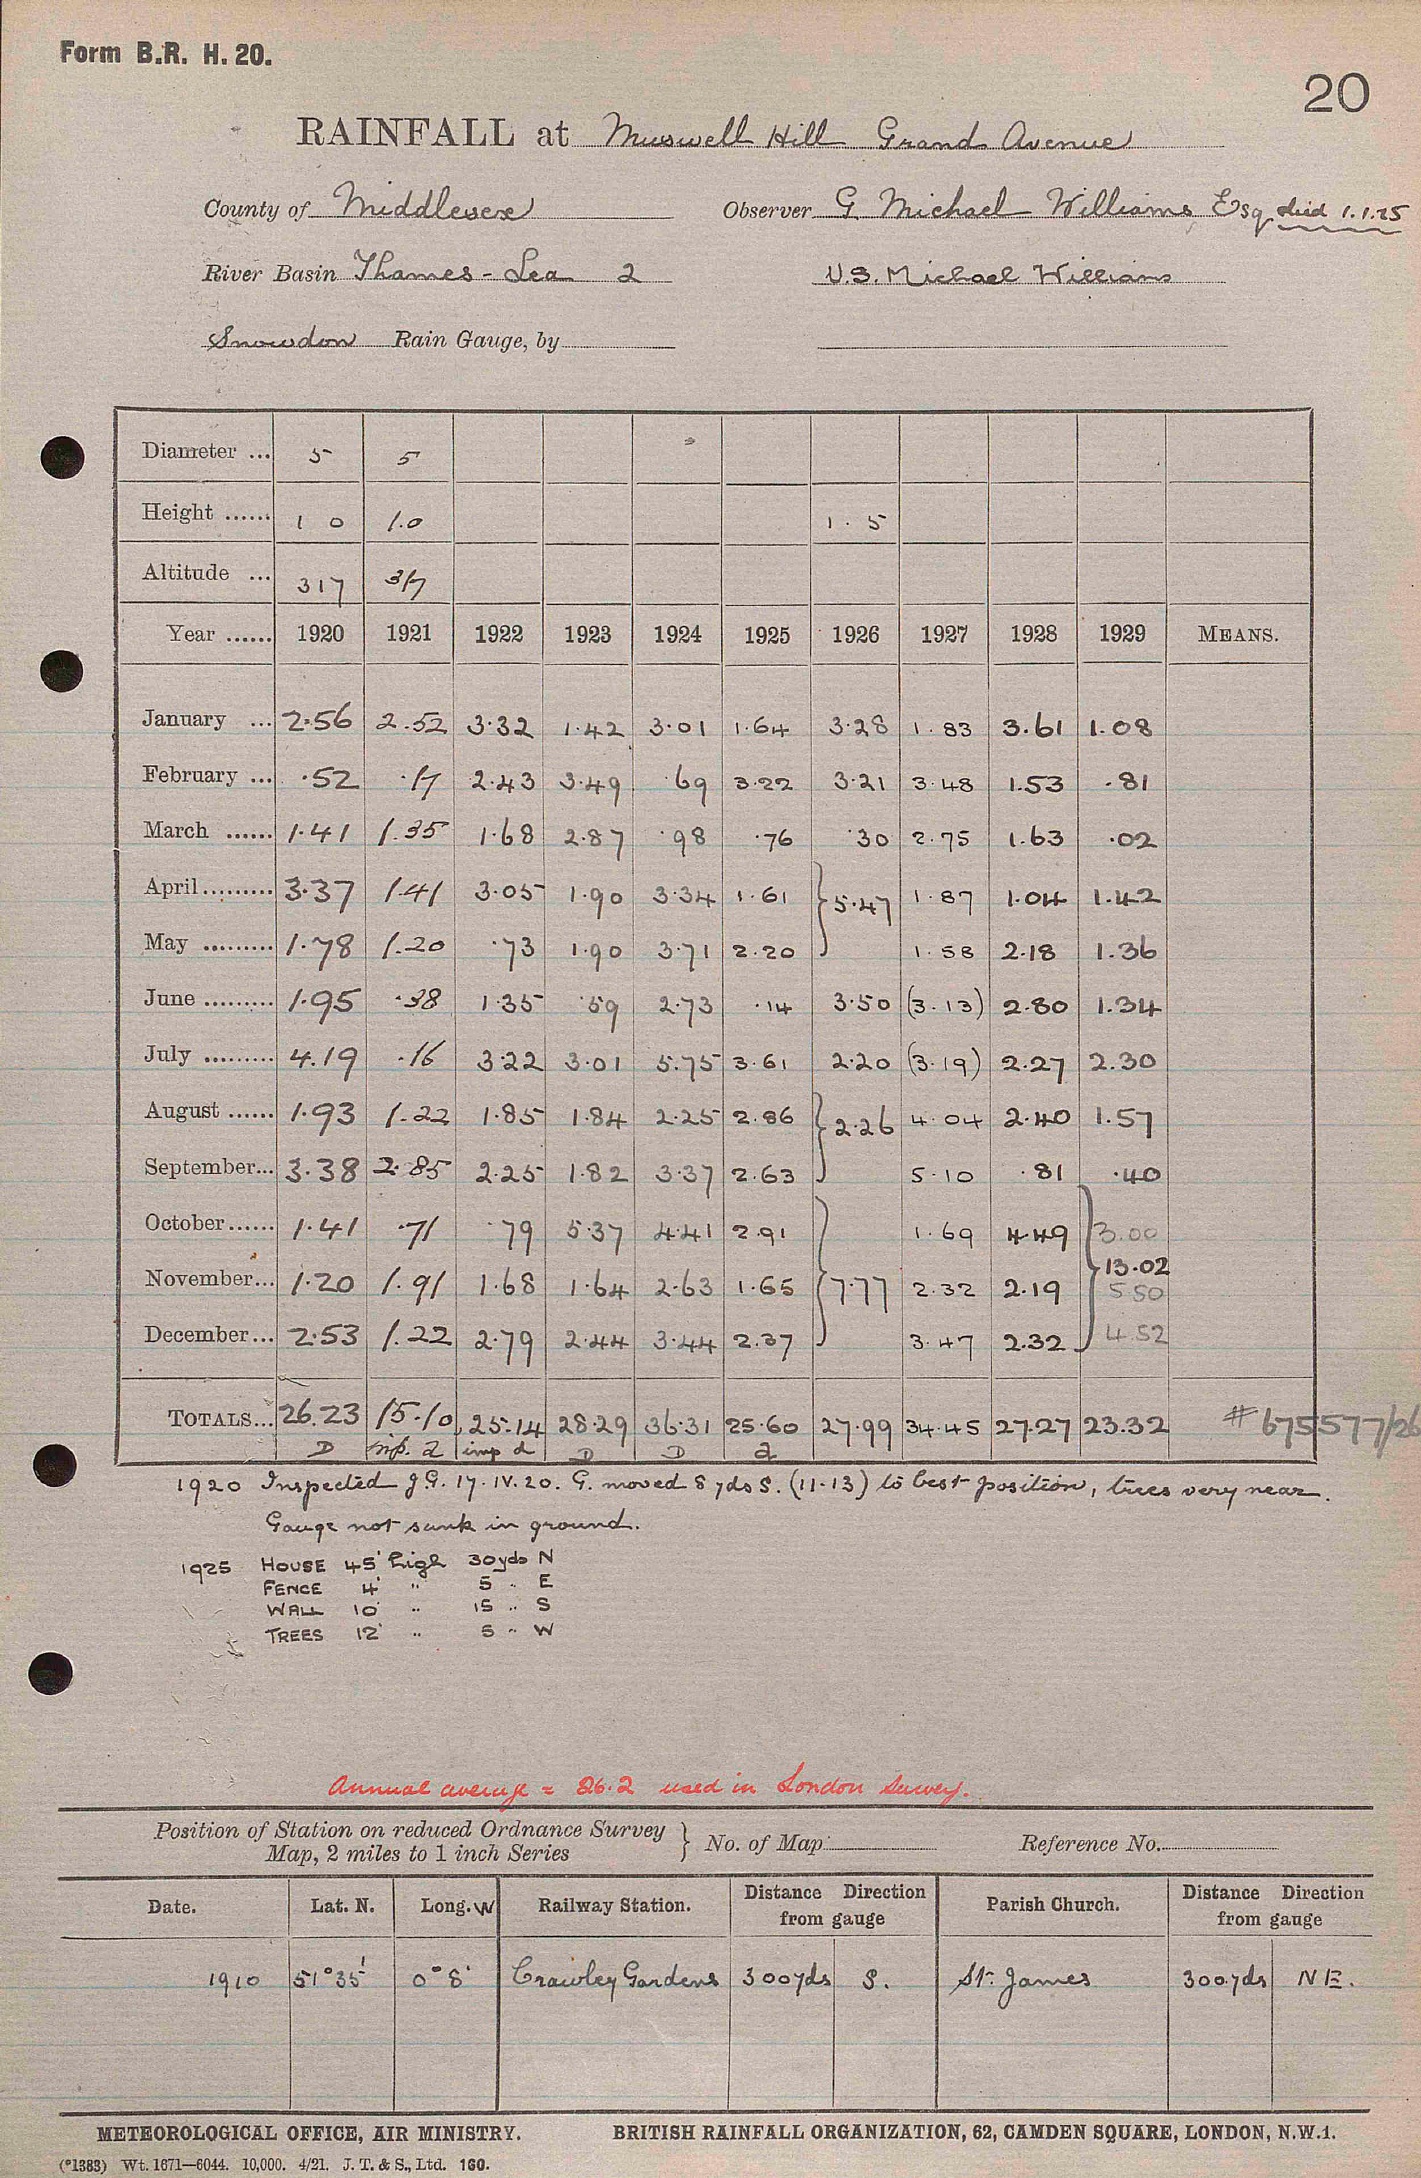 Form B.R. H. 20.
20
RAINFALL at Muswell Hill Grand Avenue
County of Middlesex Observer G Michael Williams Esq died 1.1.25
River Basin Thames - Lea 2 V.S. Michael Williams
Snowdon Rain Gauge, by
Diameter ... 5 5
Height ...... 1 0 1.0 1. 5
Altitude ... 317 317
Year ...... 1920 1921 1922 1923 1924 1925 1926 1927 1928 1929 MEANS.
January ... 2.56 2.52 3.32 1.42 3.01 1.64 3.28 1.83 3.61 1.08
February ... .52 .17 2.43 3.49 .69 3.22 3.21 3.48 1.53 .81
March ...... 1.41 1.35 1.68 2.87 .98 .76 .30 2.75 1.63 .02
April ......... 3.37 1.41 3.05 1.90 3.34 1.61 } 5.47 1.87 1.04 1.42
May ......... 1.78 1.20 .73 1.90 3.71 2.20 1.58 2.18 1.36
June ......... 1.95 .38 1.35 .59 2.73 .14 3.50 (3.13) 2.80 1.34
July ......... 4.19 .16 3.22 3.01 5.75 3.61 2.20 (3.19) 2.27 2.30
August ...... 1.93 1.22 1.85 1.84 2.25 2.86 } 2.26 4.04 2.40 1.57
September... 3.38 2.85 2.25 1.82 3.37 2.63 5.10 .81 .40
October ...... 1.41 .71 .79 5.37 4.41 2.91 1.69 4.49 3.00
November... 1.20 1.91 1.68 1.64 2.63 1.65 } 7.77 2.32 2.19 } 13.02 5.50
December... 2.53 1.22 2.79 2.44 3.44 2.37 3.47 2.32 4.52
TOTALS... 26.23 15.10 25.14 28.29 36.31 25.60 27.99 34.45 27.27 23.32 # 675577/26
D inp. d imp d D D d
1920 Inspected J.G. 17.IV.20. G. moved 8 yds S. (11-13) to best position, trees very near.
Gauge not sunk in ground.
1925 HOUSE 45' high 30 yds N
FENCE 4' " 5 " E
WALL 10' " 15 " S
TREES 12' " 5 " W
Annual average = 26.2 used in London Survey.
Position of Station on reduced Ordnance Survey Map, 2 miles to 1 inch Series } No. of Map Reference No.
Date. Lat. N. Long. W Railway Station. Distance Direction from gauge Parish Church. Distance Direction from gauge
1910 51°35' 0°8' Crawley Gardens 300yds S. St. James 300yds NE.
METEOROLOGICAL OFFICE, AIR MINISTRY. BRITISH RAINFALL ORGANIZATION, 62, CAMDEN SQUARE, LONDON, N.W.1.
(*1383) Wt. 1671—6044. 10,000. 4/21. J. T. & S., Ltd. 160.